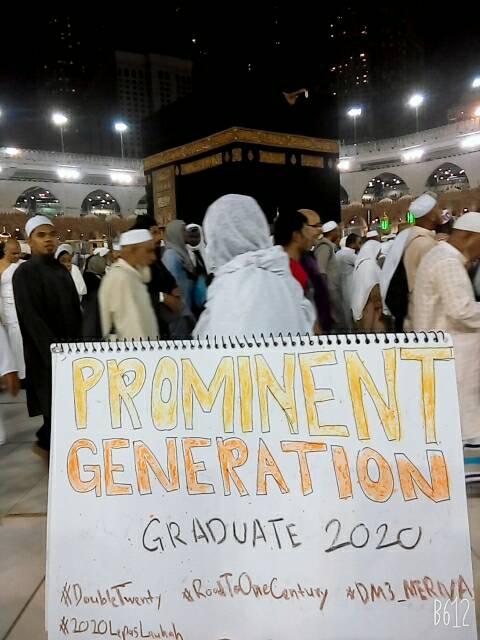 PROMINENT
GENERATION
GRADUATE 2020
#DoubleTwenty #RoadToOneCentury #DM3_NERIVA
#2020LepasLandah
B612